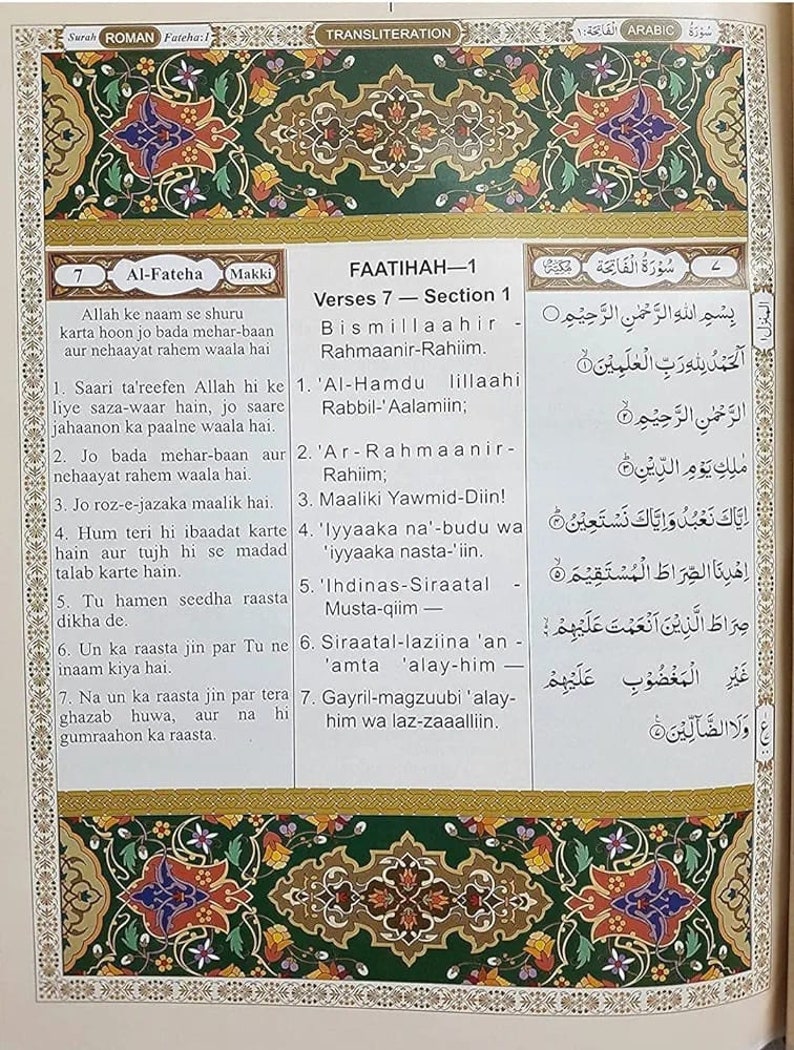 Surah ROMAN Fateha:1
TRANSLITERATION
سُوْرَةُ ARABIC الْفَاتِحَة:١
7 Al-Fateha Makki
Allah ke naam se shuru
karta hoon jo bada mehar-baan
aur nehaayat rahem waala hai
1. Saari ta'reefen Allah hi ke
liye saza-waar hain, jo saare
jahaanon ka paalne waala hai.
2. Jo bada mehar-baan aur
nehaayat rahem waala hai.
3. Jo roz-e-jazaka maalik hai.
4. Hum teri hi ibaadat karte
hain aur tujh hi se madad
talab karte hain.
5. Tu hamen seedha raasta
dikha de.
6. Un ka raasta jin par Tu ne
inaam kiya hai.
7. Na un ka raasta jin par tera
ghazab huwa, aur na hi
gumraahon ka raasta.
FAATIHAH—1
Verses 7 — Section 1
Bismillaahir -
Rahmaanir-Rahiim.
1. 'Al-Hamdu lillaahi
Rabbil-'Aalamiin;
2. 'Ar-Rahmaanir-
Rahiim;
3. Maaliki Yawmid-Diin!
4. 'Iyyaaka na'-budu wa
'iyyaaka nasta-'iin.
5. 'Ihdinas-Siraatal -
Musta-qiim —
6. Siraatal-laziina 'an -
'amta 'alay-him —
7. Gayril-magzuubi 'alay-
him wa laz-zaaalliin.
٧ سُوْرَةُ الْفَاتِحَة مَكِّيَّةٌ
بِسْمِ اللّٰهِ الرَّحْمٰنِ الرَّحِيْمِ○
اَلْحَمْدُ لِلّٰهِ رَبِّ الْعٰلَمِيْنَۙ۝١
الرَّحْمٰنِ الرَّحِيْمِۙ۝٢
مٰلِكِ يَوْمِ الدِّيْنِؕ۝٣
اِيَّاكَ نَعْبُدُ وَاِيَّاكَ نَسْتَعِيْنُؕ۝٤
اِهْدِنَا الصِّرَاطَ الْمُسْتَقِيْمَۙ۝٥
صِرَاطَ الَّذِيْنَ اَنْعَمْتَ عَلَيْهِمْ۬ۙ۝٦
غَيْرِ الْمَغْضُوْبِ عَلَيْهِمْ
وَلَا الضَّآلِّيْنَ۝٧
المنزل ١
ع